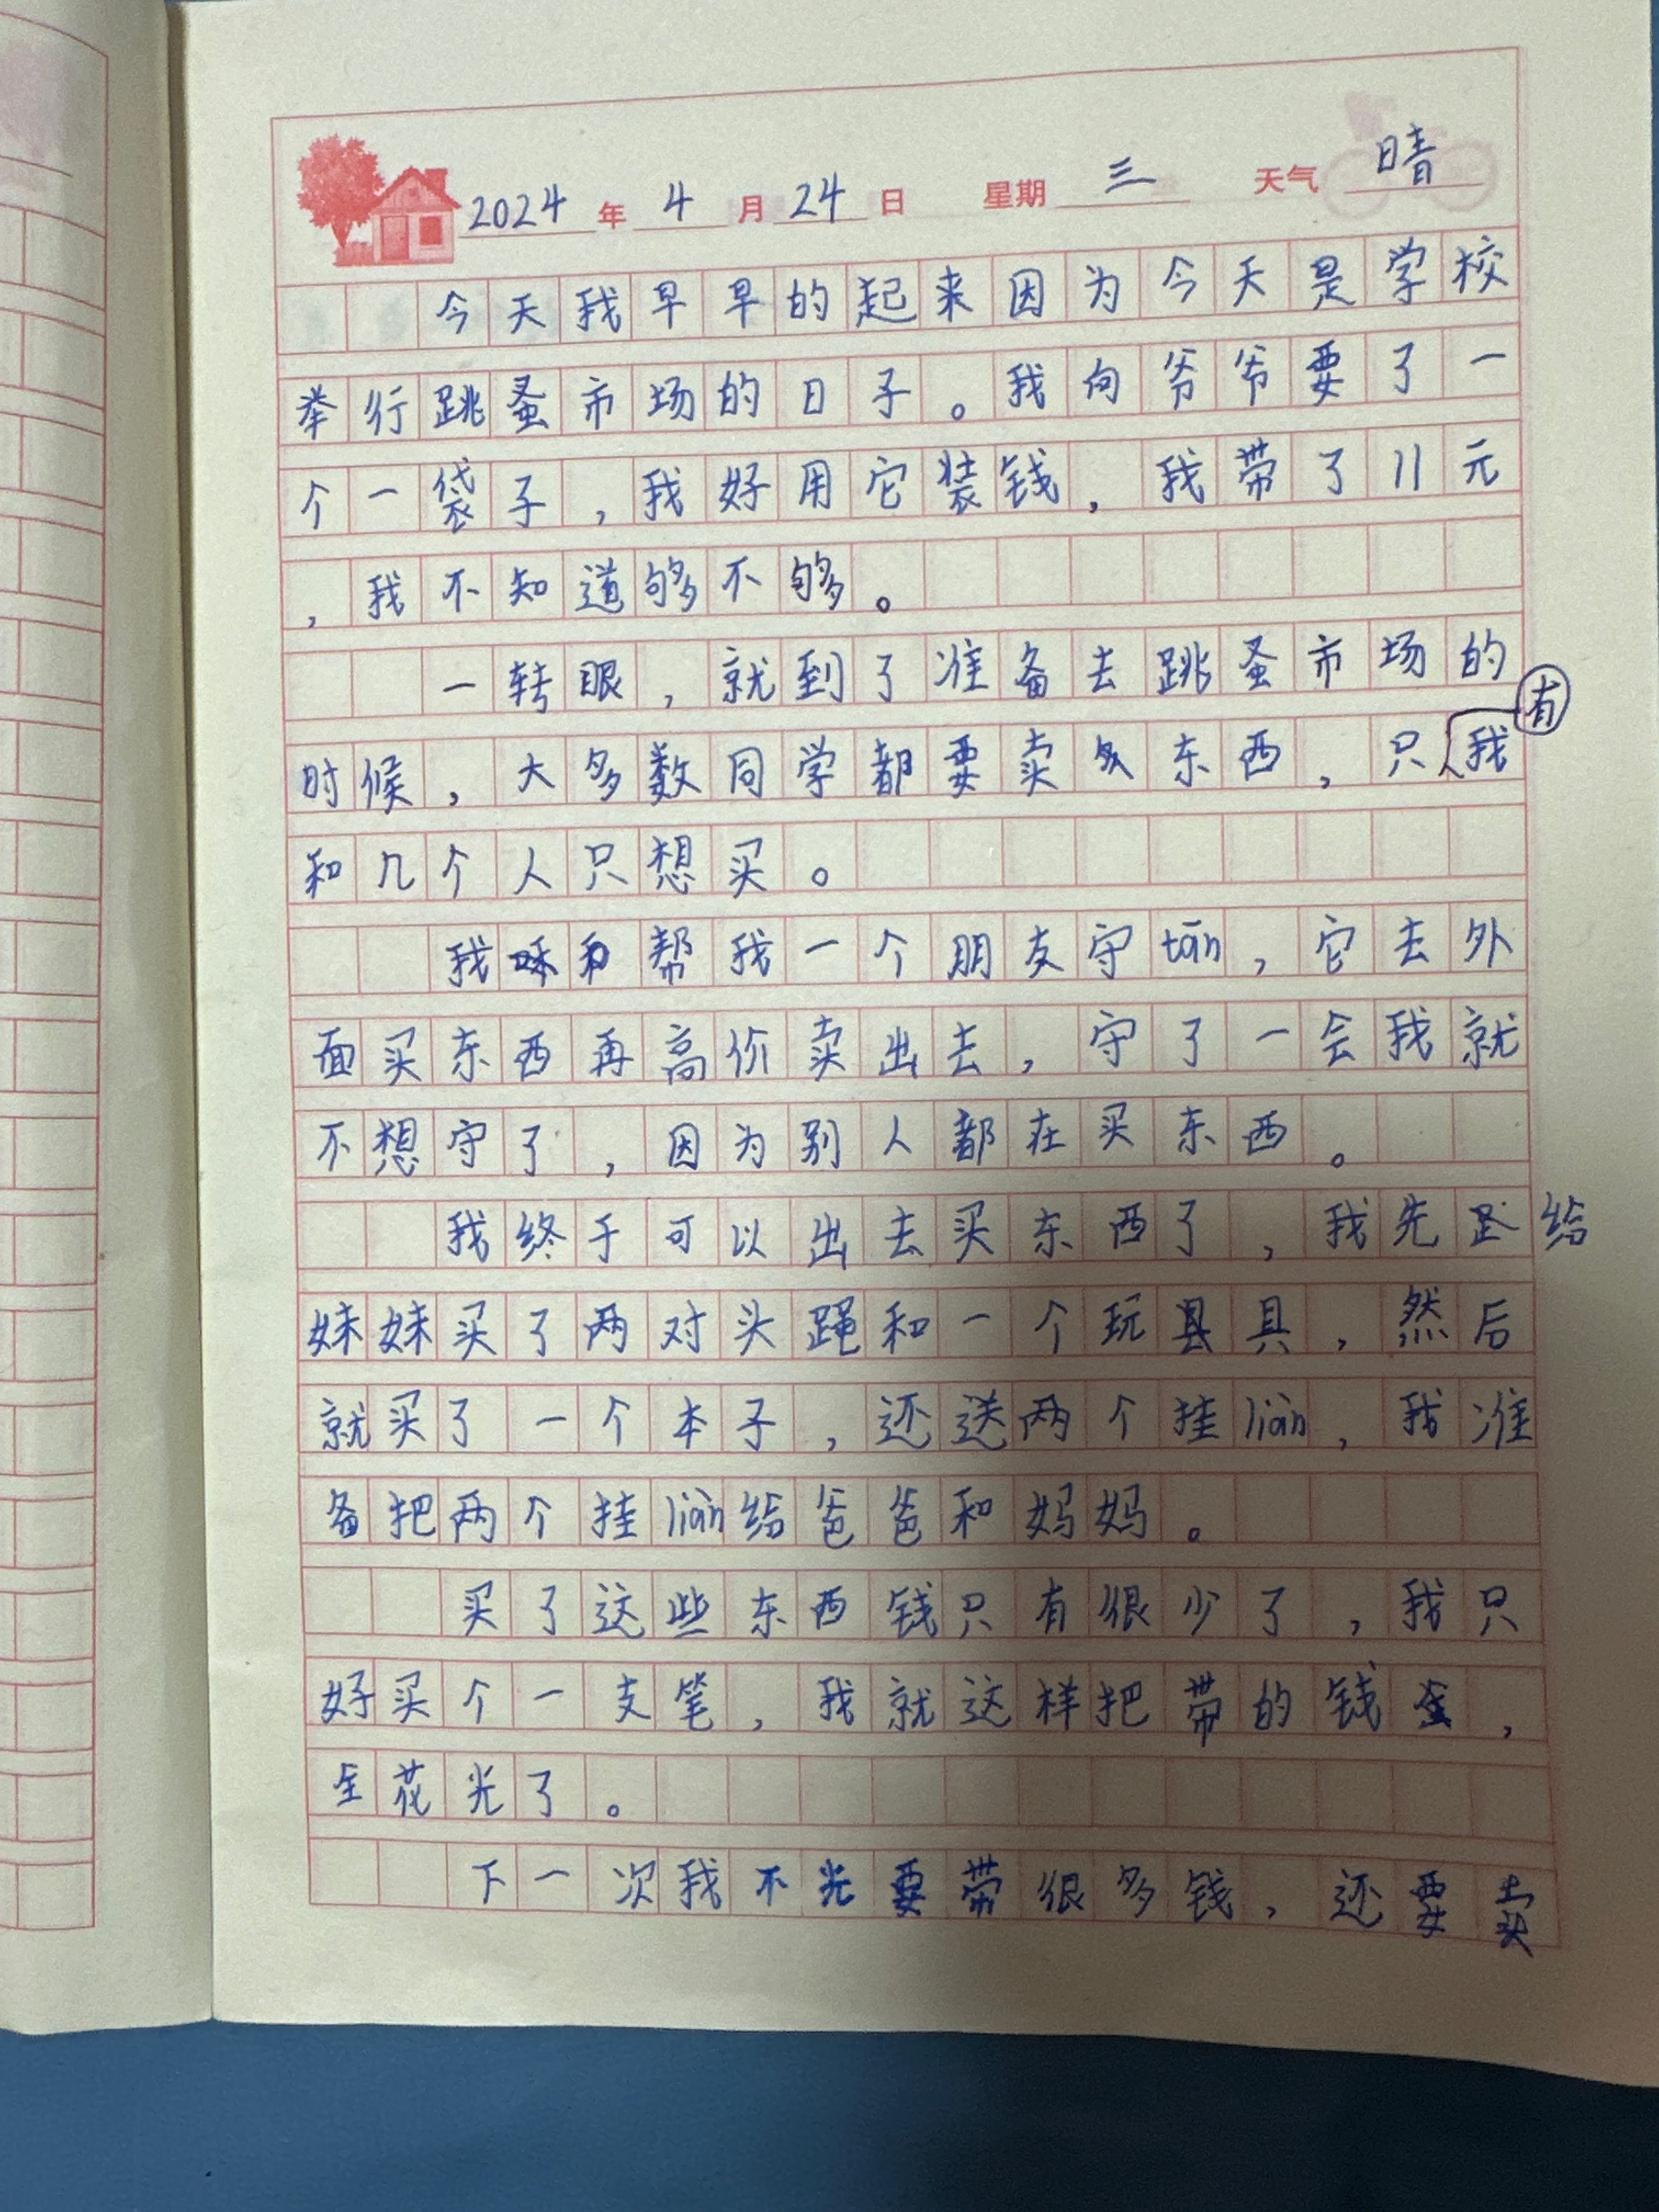 2024年4月24日 星期三 天气晴
今天我早早的起来因为今天是学校
举行跳蚤市场的日子。我向爷爷要了一
个一袋子,我好用它装钱,我带了11元
,我不知道够不够。
一转眼,就到了准备去跳蚤市场的
时候,大多数同学都要卖东西,只有我
和几个人只想买。
我帮我一个朋友守tān,它去外
面买东西再高价卖出去,守了一会我就
不想守了,因为别人都在买东西。
我终于可以出去买东西了,我先给
妹妹买了两对头蹆和一个玩具,然后
就买了一个本子,还送两个挂liàn,我准
备把两个挂liàn给爸爸和妈妈。
买了这些东西钱只有很少了,我只
好买个一支笔,我就这样把带的钱,
全花光了。
下一次我不光要带很多钱,还要卖